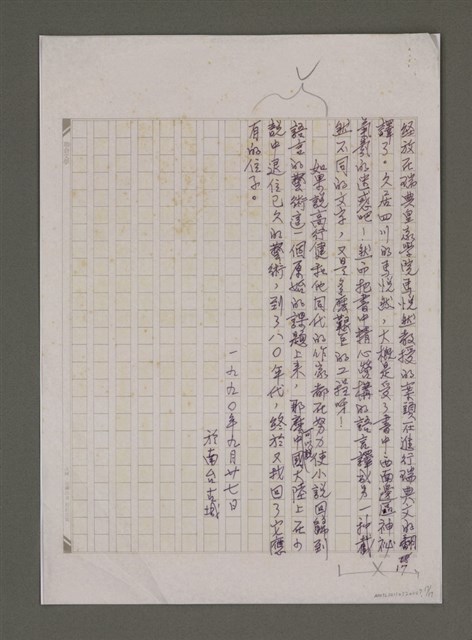 經放在瑞典皇家學院馬悅然教授的案頭在進行瑞典文的翻
譯了。久居四川的馬悅然，大概是受了書中西南邊區神祕
氣氛的迷惑吧！然而把書中精心營構的語言譯成另一種截
然不同的文字，又是多麼艱巨的工程呀！
如果說高行健和他同代的作家都在努力使小說回歸到
語言的藝術這一個原始的課題上來，那麼中國大陸上在小
說中退位已久的藝術，到了八〇年代，終於又找回了它應
有的位子。
一九九〇年九月廿七日
於南台古城
17